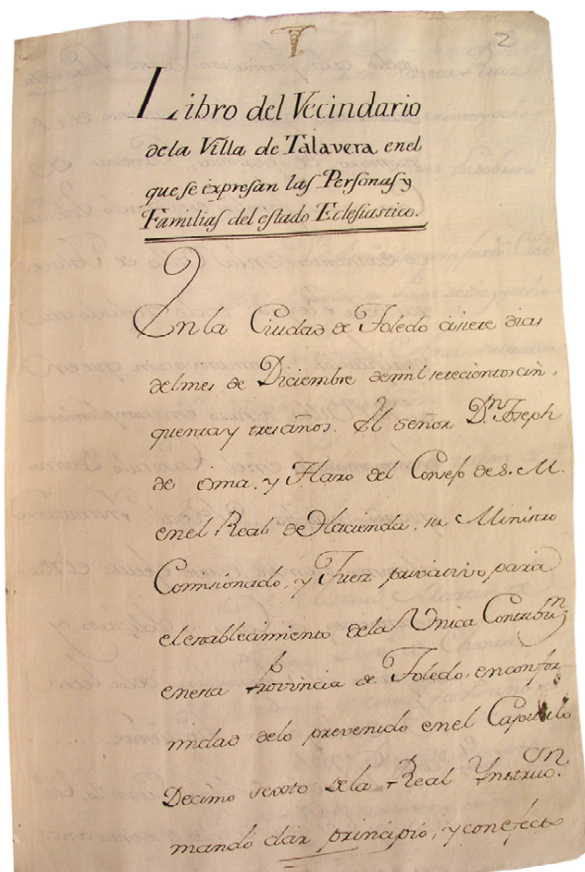 2
Libro del Vecindario
dela Villa de Talavera enel
que se expresan las Personas y
Familias del estado Eclesiastico.
En la Ciudad de Toledo à siete dias
del mes de Diciembre de mil setecientos cin,
quenta y tres años. El señor Dn. Joseph
de Oma, y Haro del Consejo de S. M.
en el Real de Hacienda, su Ministro
Comisionado, y Juez privativo para
el establecimiento dela Unica Contribn.
en esta Provincia de Toledo, en confor-
midad delo prevenido en el Capitulo
Decimo sexto dela Real Ynstrucn.
mandó dàr principio, y con efecto